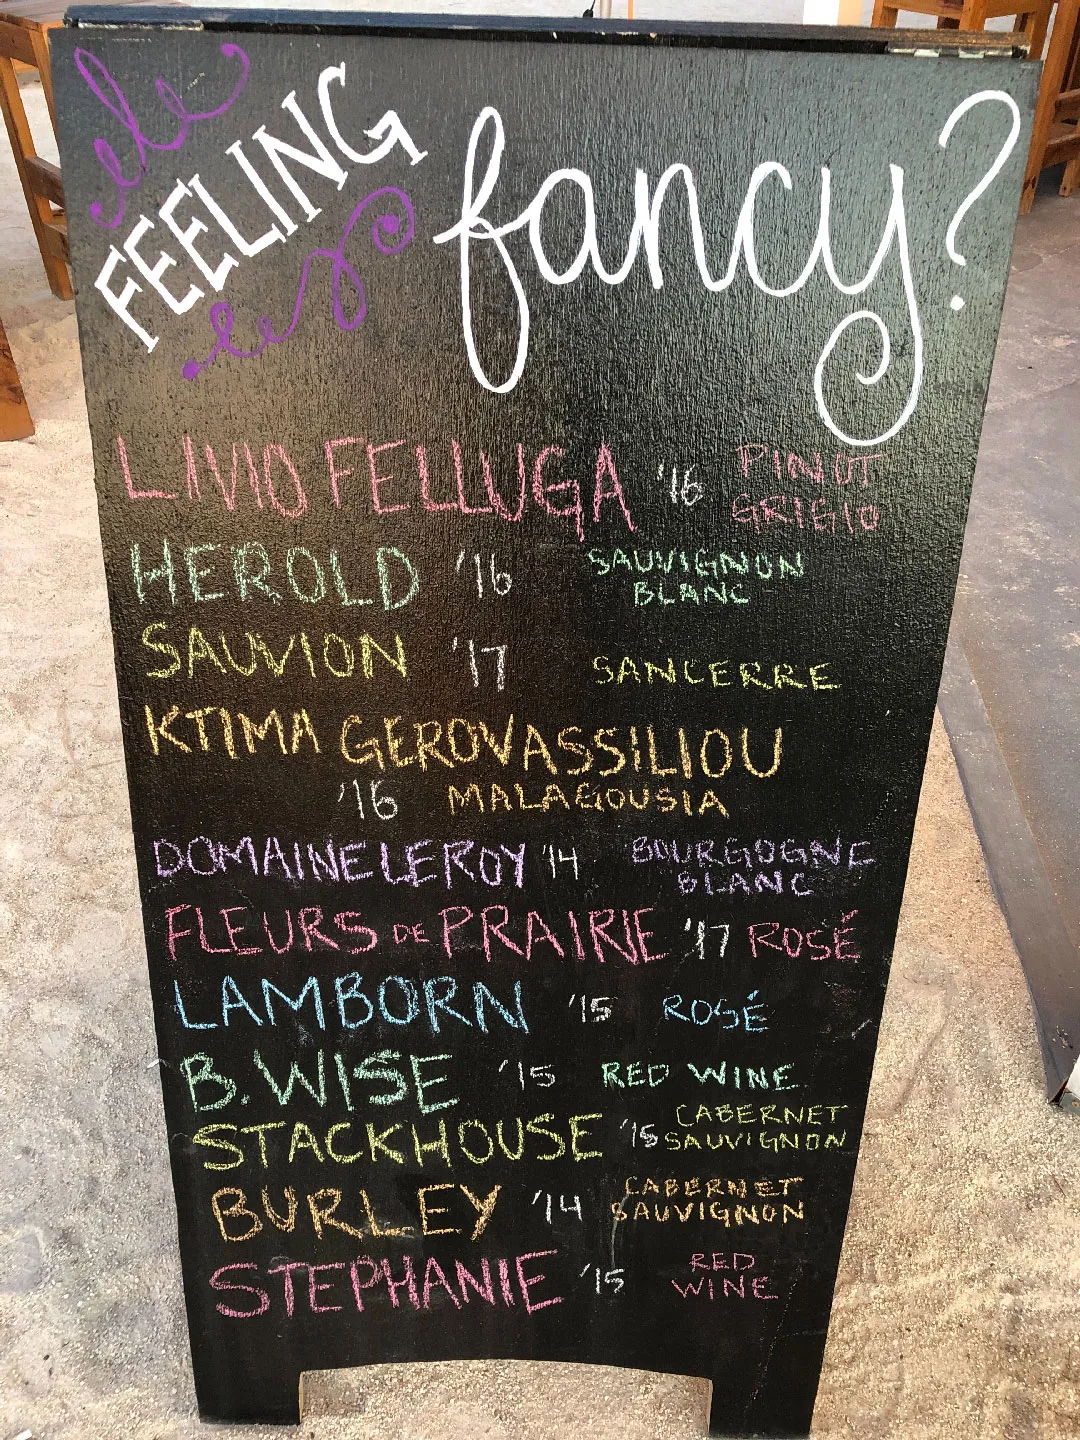 FEELING fancy?
LIVIO FELLUGA '16 PINOT GRIGIO
HEROLD '16 SAUVIGNON BLANC
SAUVION '17 SANCERRE
KTIMA GEROVASSILIOU
'16 MALAGOUSIA
DOMAINE LEROY '14 BOURGOGNE BLANC
FLEURS DE PRAIRIE '17 ROSÉ
LAMBORN '15 ROSÉ
B. WISE '15 RED WINE
STACKHOUSE '15 CABERNET SAUVIGNON
BURLEY '14 CABERNET SAUVIGNON
STEPHANIE '15 RED WINE